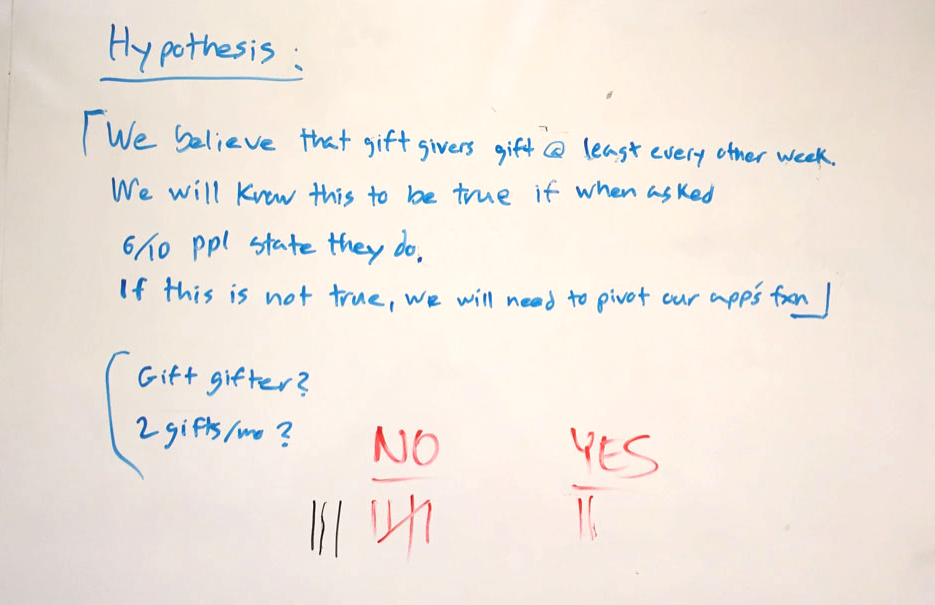 Hypothesis:
「We believe that gift givers gift @ least every other week.
We will know this to be true if when asked
6/10 ppl state they do.
If this is not true, we will need to pivot our app's fxn」
Gift gifter?
2 gifts/mo?
NO YES